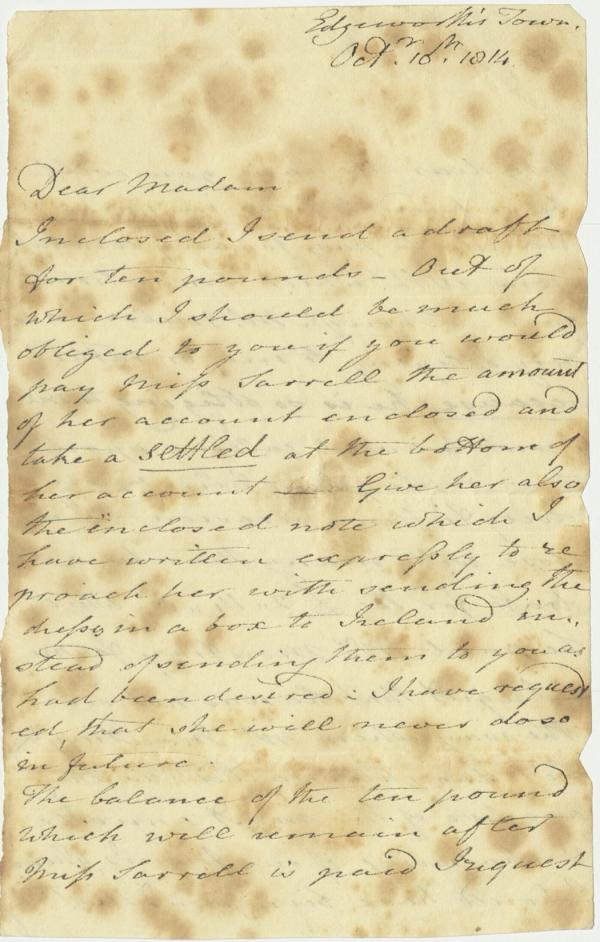 Edgeworth's Town.
Octr. 10th. 1814
Dear Madam
Inclosed I send a draft
for ten pounds – Out of
which I should be much
obliged to you if you would
pay Miss Sarrell the amount
of her account enclosed and
take a settled at the bottom of
her account — Give her also
the inclosed note which I
have written expressly to re
proach her with sending the
dresses in a box to Ireland in-
stead of sending them to you as
had been desired: I have request
ed, that she will never do so
in future.
The balance of the ten pound
which will remain after
Miss Sarrell is paid I request